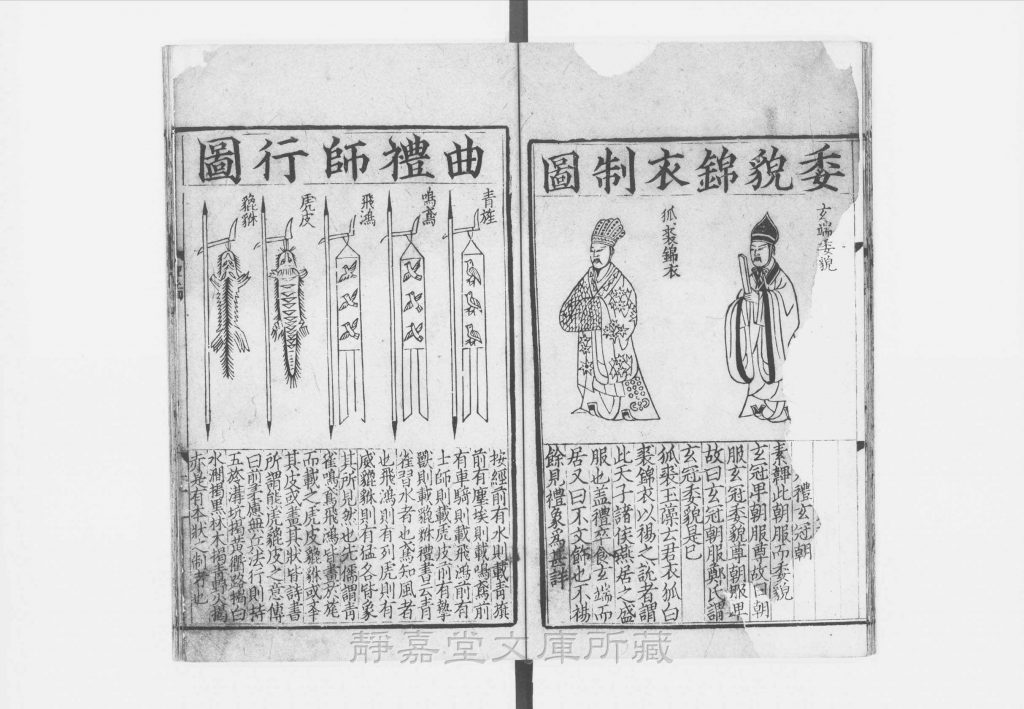 委貌錦衣制圖
玄端委貌
狐裘錦衣
禮玄冠朝
素韠此朝服而委貌
玄冠卑朝服尊故曰朝
服玄冠委貌尊朝服卑
故曰玄冠朝服鄭氏謂
玄冠委貌是已
狐裘玉藻云君衣狐白
裘錦衣以裼之說者謂
此天子諸侯燕居之盛
服也蓋禮卒食玄端而
居又曰不文飾也不裼
餘見禮象為甚詳
曲禮師行圖
青旌
鳴鳶
飛鴻
虎皮
貔貅
按經前有水則載青旌
前有塵埃則載鳴鳶前
有車騎則載飛鴻前有
士師則載虎皮前有摯
獸則載貔貅禮書云青
雀習水者也鳶知風者
也飛鴻則有列虎則有
威貔貅則有猛各皆象
其所見然也先儒謂青
雀鳴鳶飛鴻皆畫於旌
而載之虎皮貔貅或舉
其皮或畫其狀皆詩書
所謂熊虎貔皮之意傳
曰前茅慮無方法行則持
五
水澗揭黑林木揭
亦是有本狀之制
靜嘉堂文庫所藏